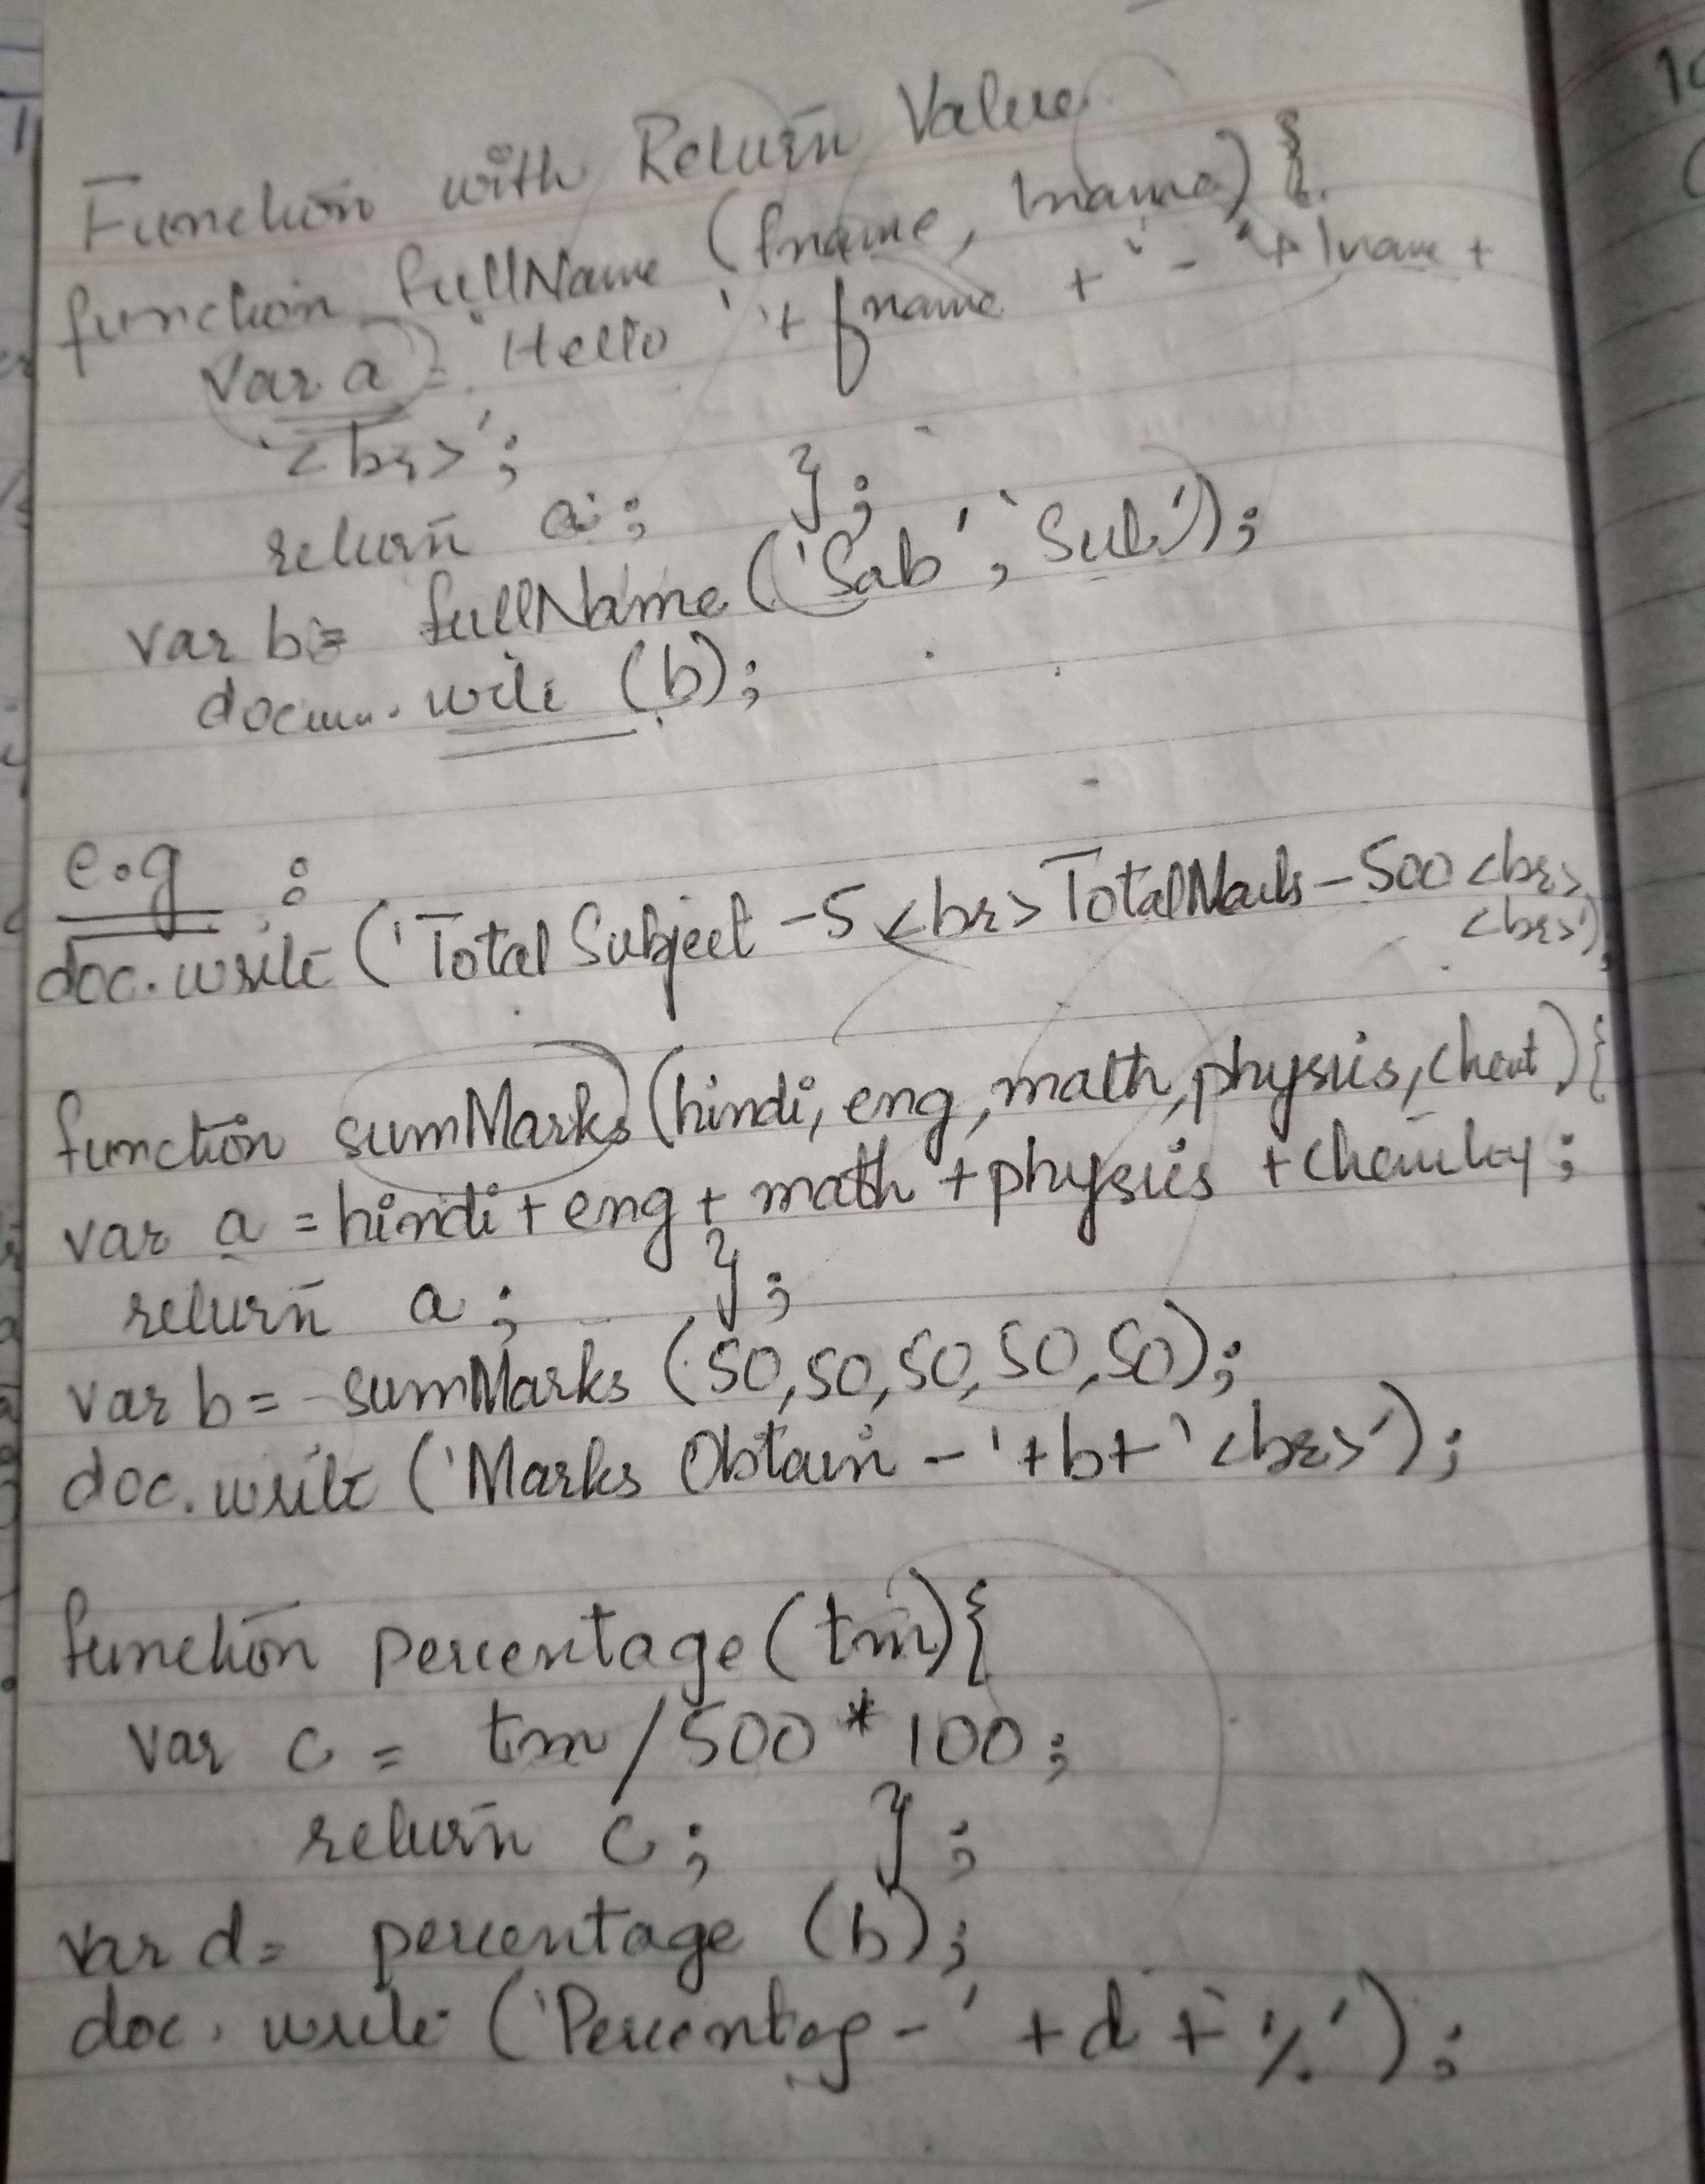 Function with Return Value
function fullName (fname, lname) {
var a = 'Hello ' + fname + ' - ' + lname +
'<br>';
return a; };
var b = fullName ('Sab', 'Sub');
docum. write (b);
e.g :
doc.write ('Total Subject -5 <br> Total Marks - 500 <br>
<br>');
function sumMarks (hindi, eng, math, physics, chemt) {
var a = hindi + eng + math + physics + chemistry;
return a; };
var b = sumMarks (50, 50, 50, 50, 50);
doc. write ('Marks Obtain - ' + b + '<br>');
function percentage (tm) {
var c = tm / 500 * 100;
return c; };
var d = percentage (b);
doc. write ('Percentag - ' + d + '%');